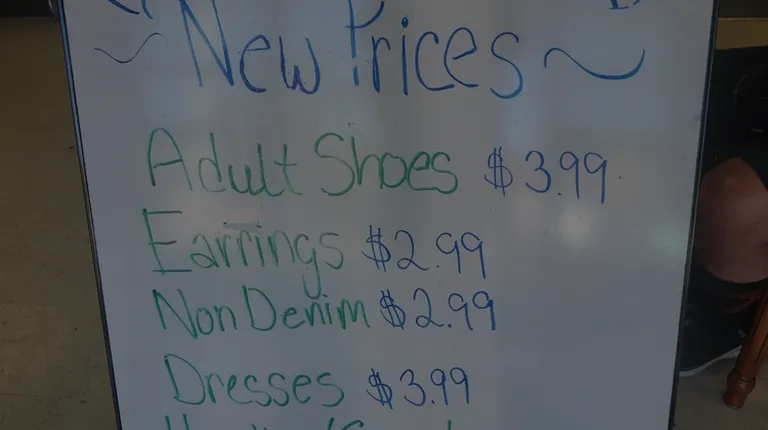 ~ New Prices ~
Adult Shoes $3.99
Earrings $2.99
Non Denim $2.99
Dresses $3.99